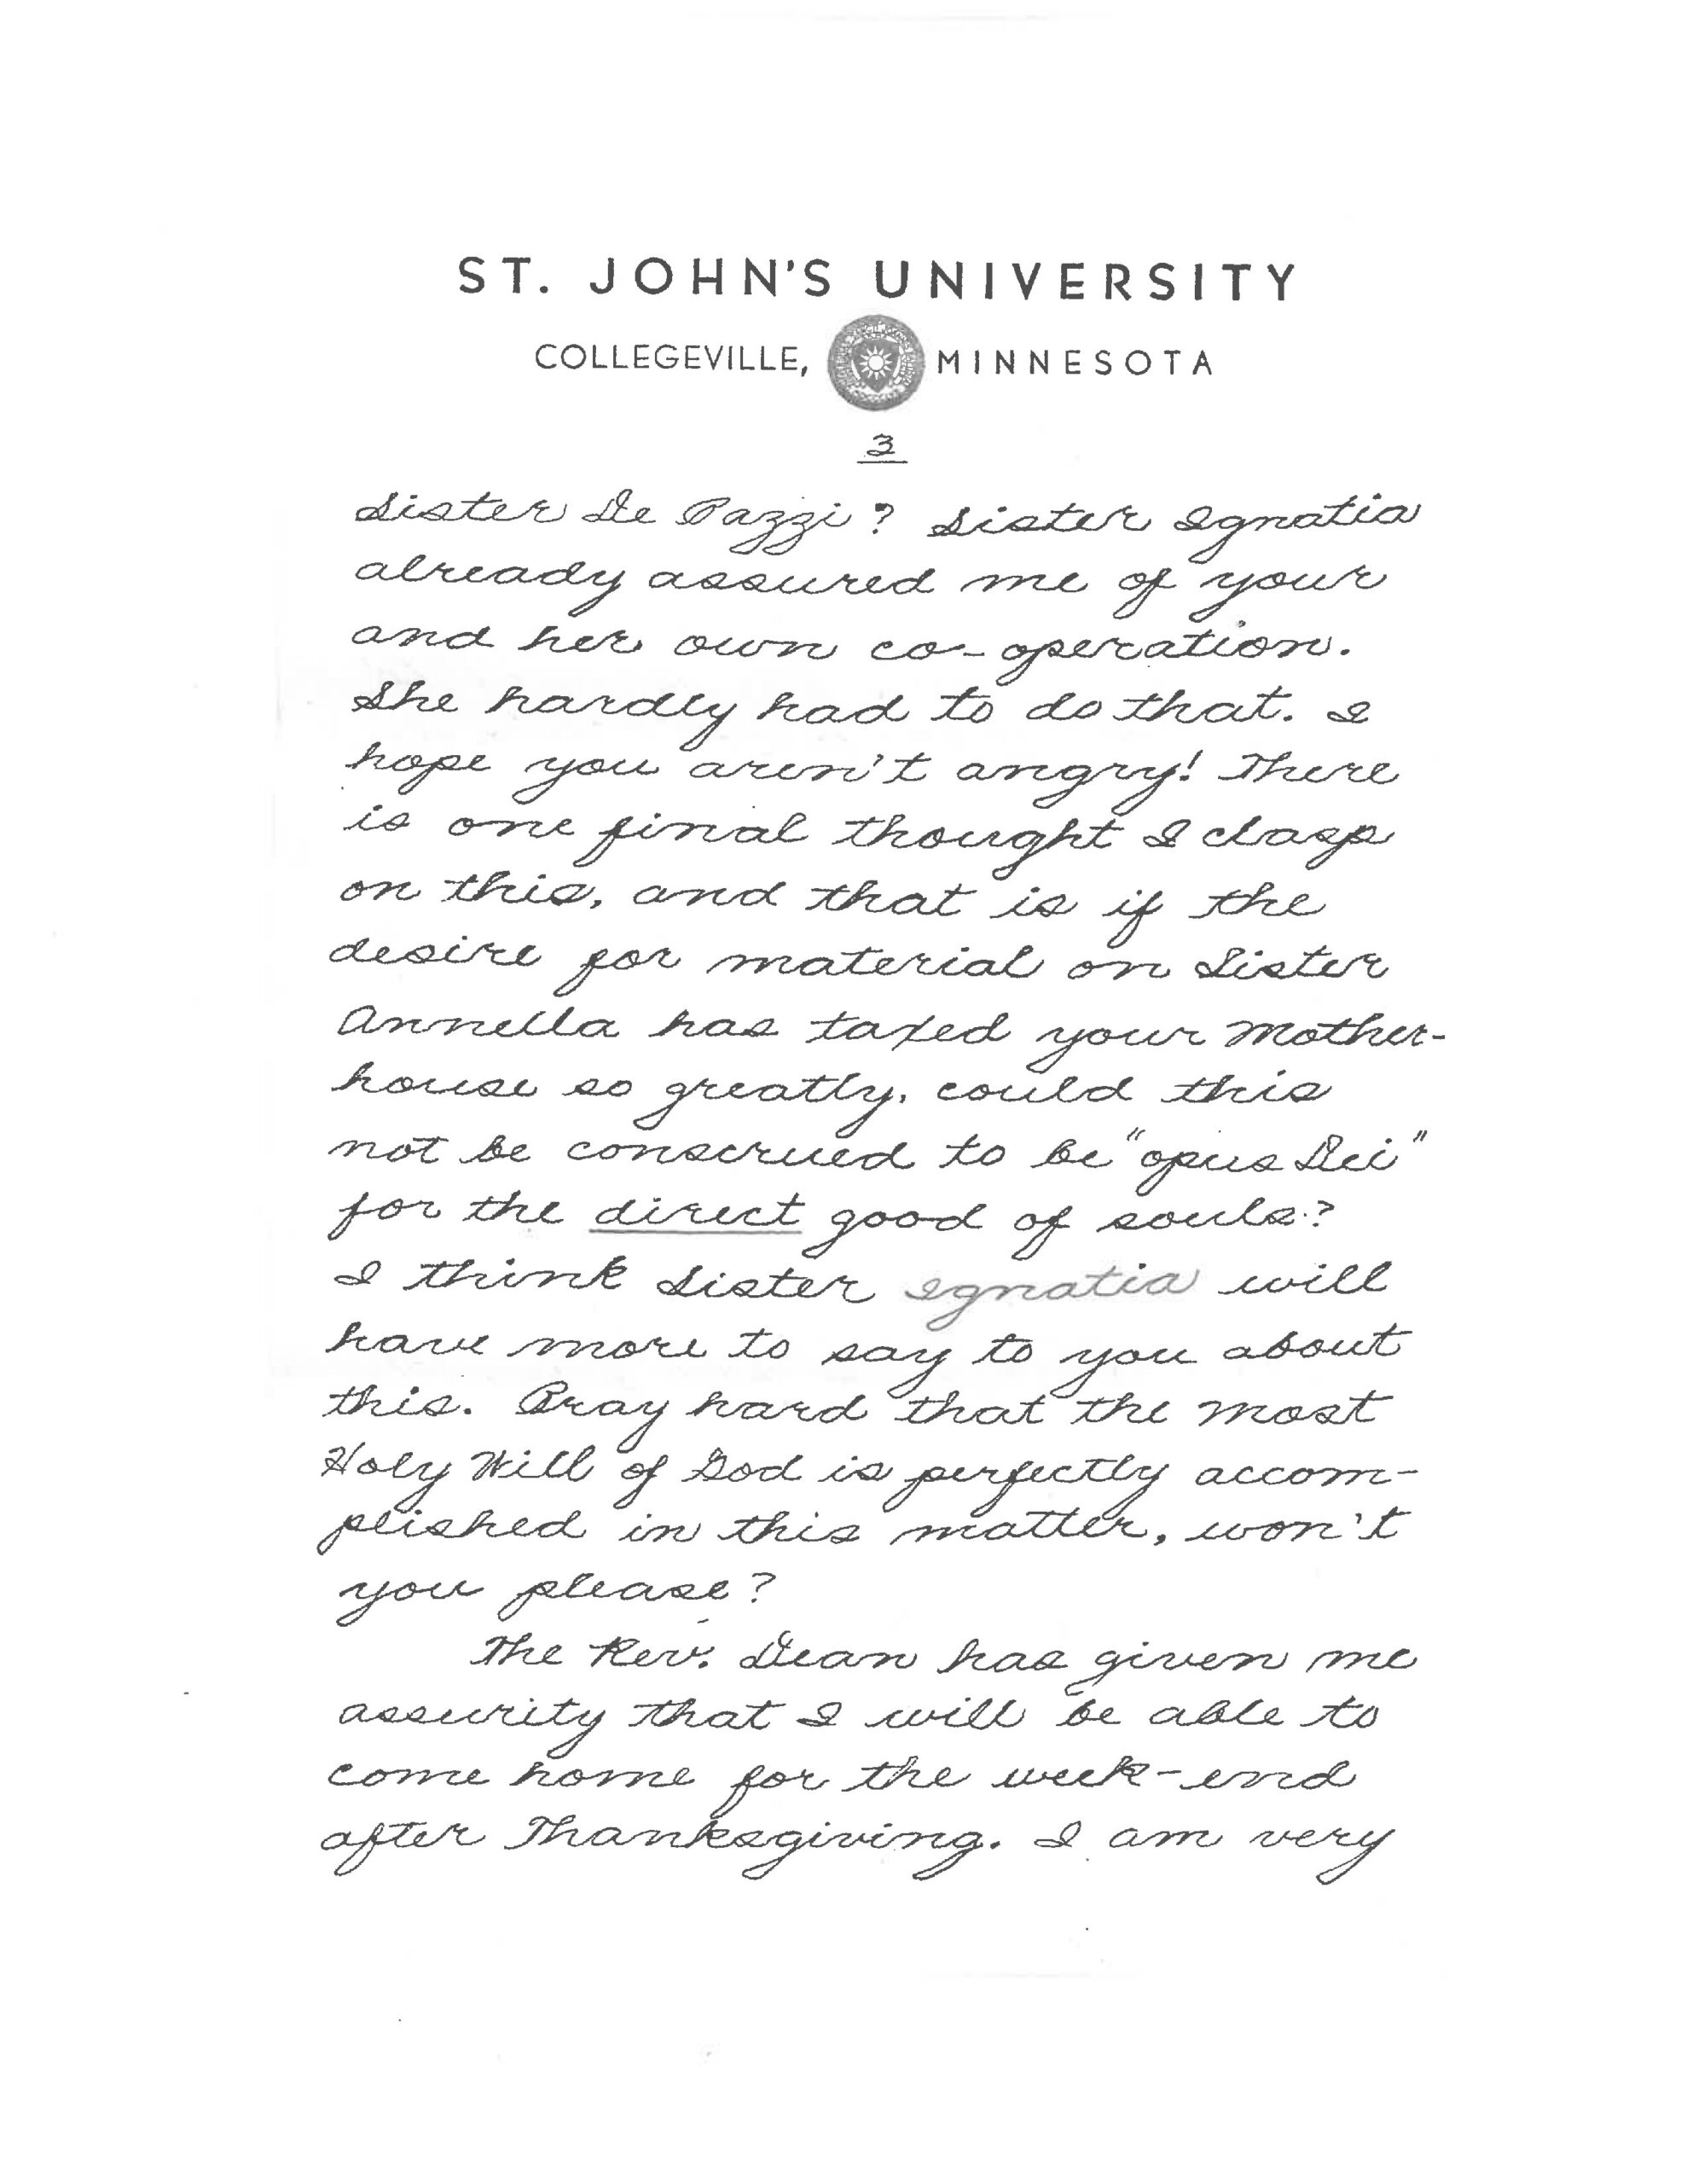 ST. JOHN'S UNIVERSITY
COLLEGEVILLE, MINNESOTA
3
Sister De Pazzi? Sister Ignatia
already assured me of your
and her own co-operation.
She hardly had to do that. I
hope you aren't angry! There
is one final thought I clasp
on this, and that is if the
desire for material on Sister
Annella has taxed your Mother-
house so greatly, could this
not be conscrued to be "opus Dei"
for the direct good of souls?
I think Sister Ignatia will
have more to say to you about
this. Pray hard that the most
Holy Will of God is perfectly accom-
plished in this matter, won't
you please?
The Rev. Dean has given me
assurity that I will be able to
come home for the week-end
after Thanksgiving. I am very